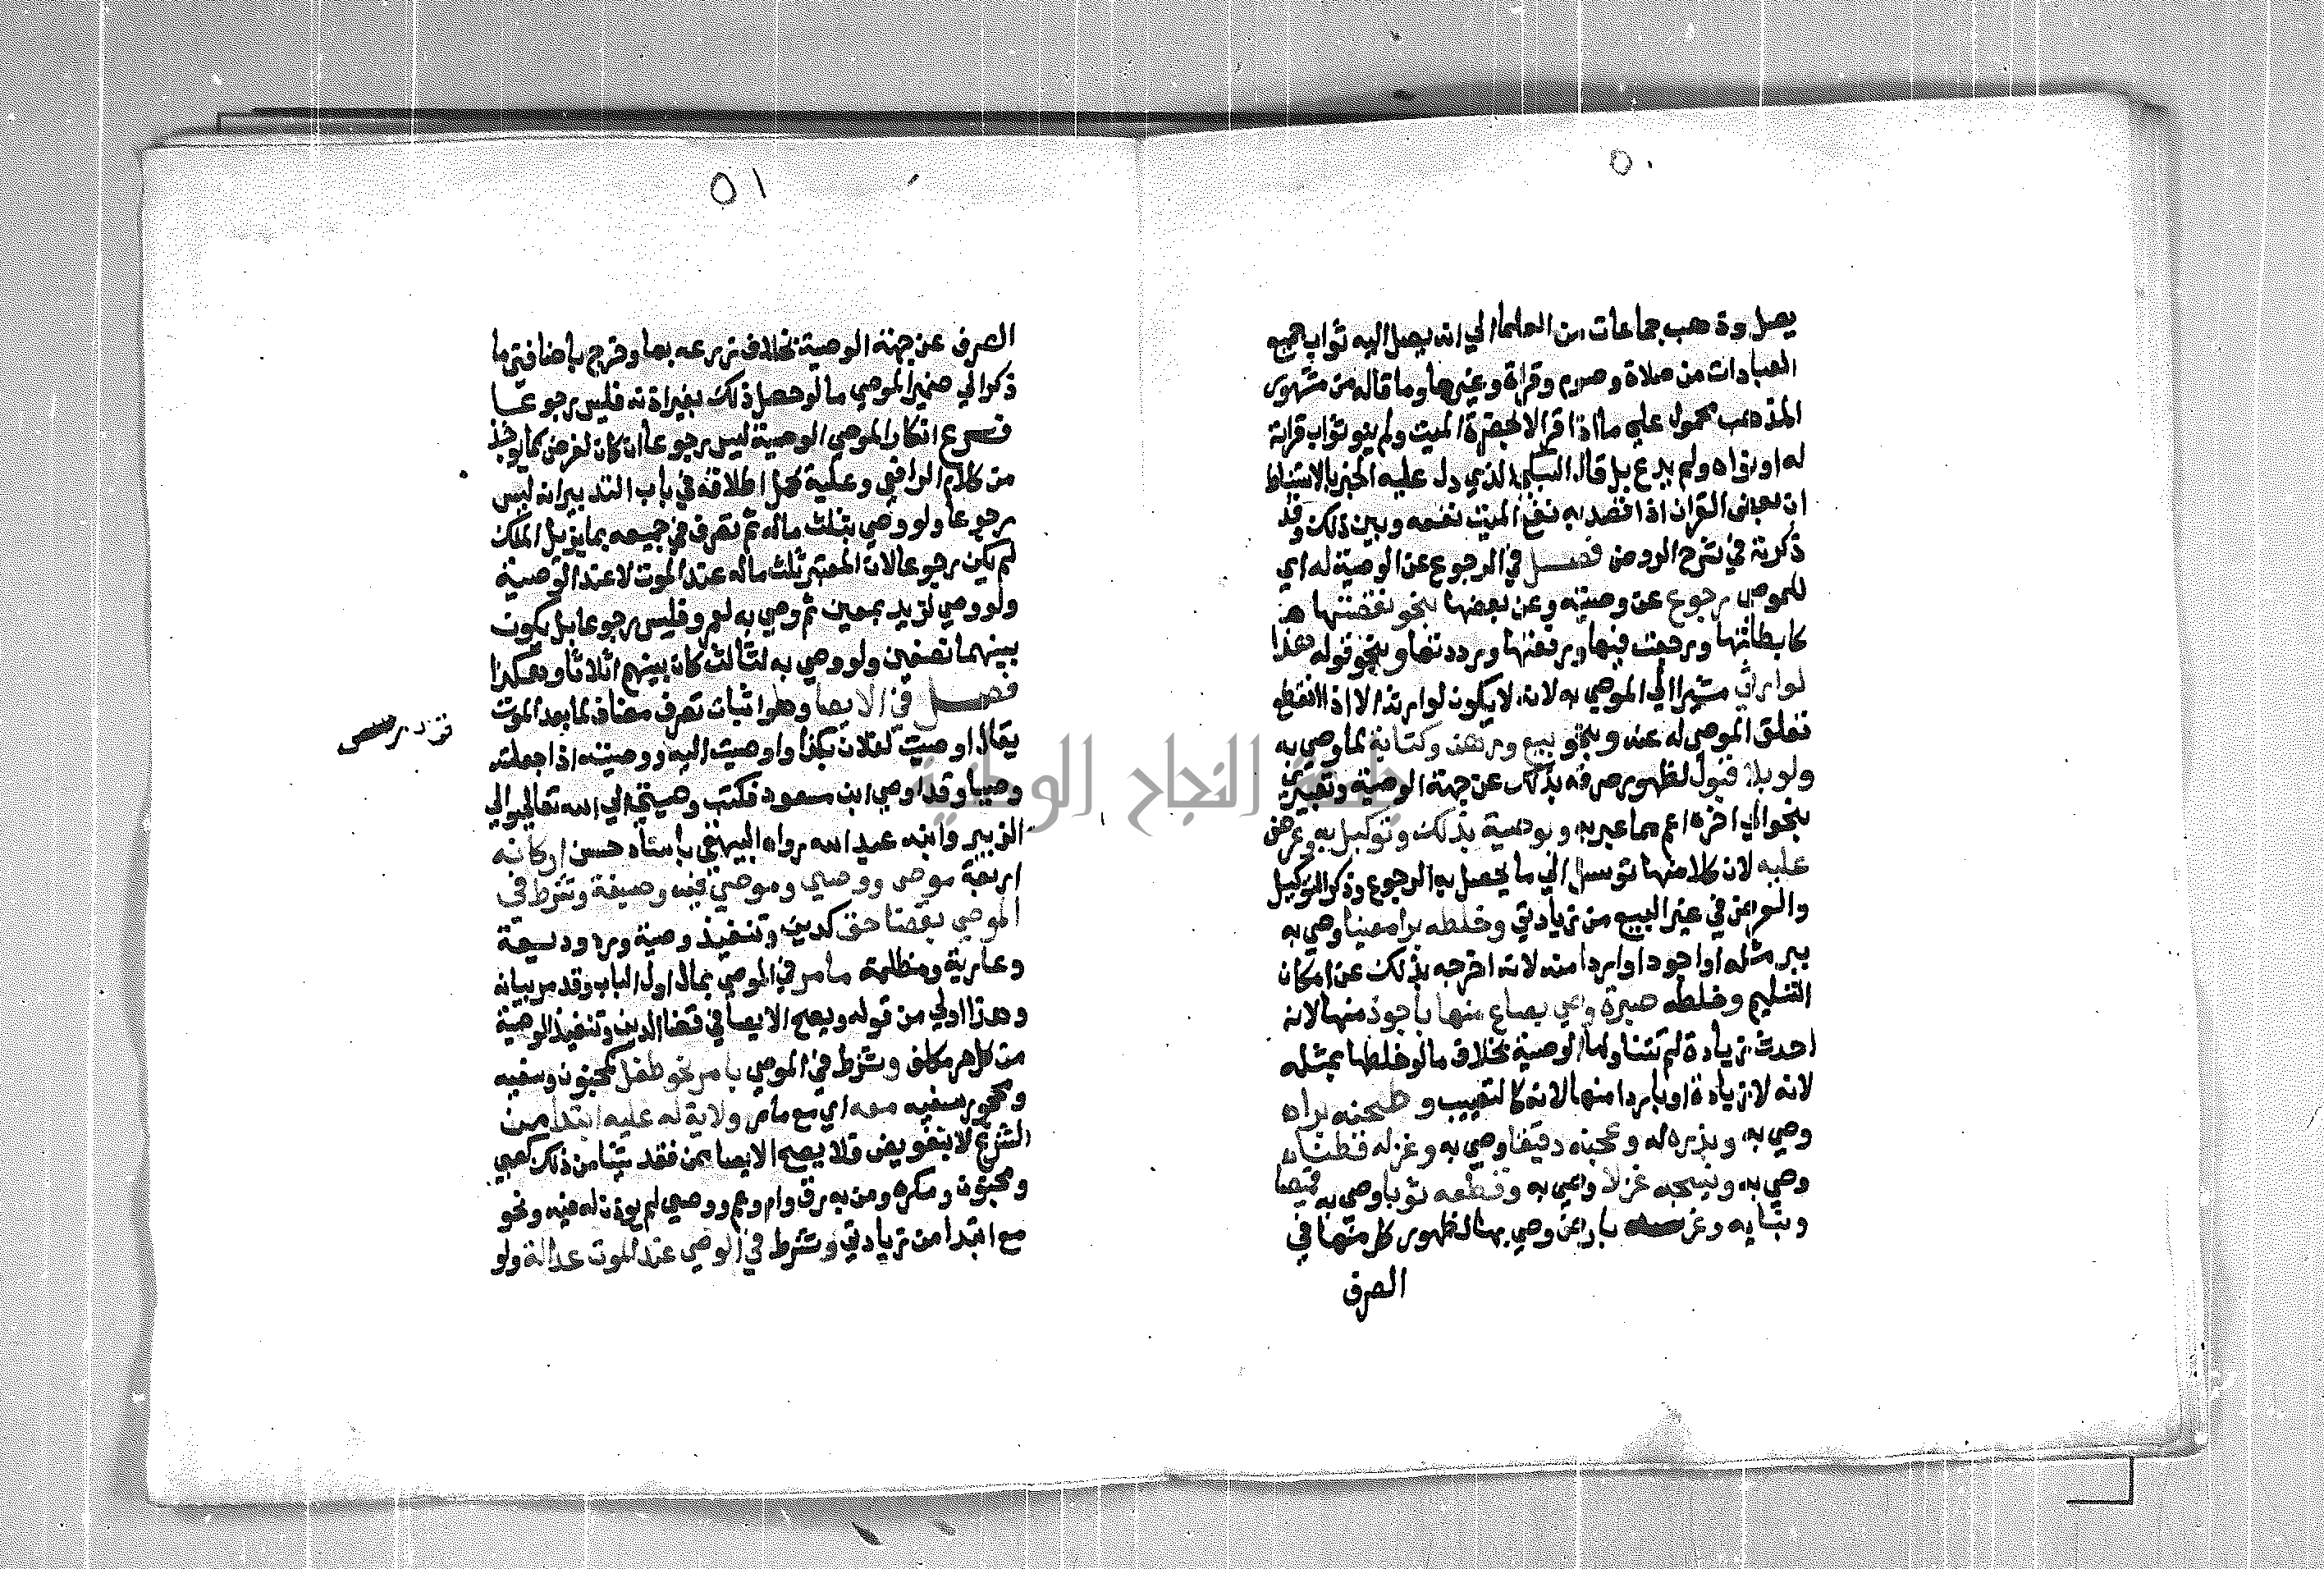 ٥٠
يصل وذهب جماعات من العلماء الي انه يصل اليه ثواب جميع
العبادات من صلاة وصوم وقراة وغيرها وما قاله من مشهور
المذهب محمول علي ما اذا قرا لا بحضرة الميت ولم ينو ثواب قراته
له او نواه ولم يدع بل قال السبكي الذي دل عليه الخبر بالاستنباط
ان بعض القران اذا قصد به نفع الميت نفعه وبين ذلك وقد
ذكرته في شرح الروض فصل في الرجوع عن الوصية له اي
للموصي رجوع عن وصيته وعن بعضها بنحو نقضتها هـ
كابطلتها ورجعت فيها ورفعتها ورددتها وبنحو قوله هذا
لوارثي مشيرا الي الموصي به لانه لا يكون لوارثه الا اذا انقطع
تعلق الموصي له عنه وبنحو بيع ورهن وكتابة لما وصي به
ولو بلا قبول لظهور صرفه بذلك عن جهة الوصية وتعبيري
بنحو الي اخره اعم مما عبر به وبوصية بذلك وتوكيل به وعرض
عليه لان كلا منها توسل الي ما يحصل به الرجوع وذكر التوكيل
والعرض في غير البيع من زيادتي وخلطه برا معينا وصي به
ببر مثله او اجود او اردا منه لانه اخرجه بذلك عن امكان
التسليم وخلطه صبرة وصي بصاع منها باجود منها لانه
احدث زيادة لم تتناولها الوصية بخلاف ما لو خلطها بمثله
لانه لا زيادة او باردا منها لانه كالتعييب وطحنه برا
وصي به وبذره له وعجنه دقيقا وصي به وغزله قطنا
وصي به ونسجه غزلا وصي به وقطعه ثوبا وصي به قميصا
وبنايه وغرسه بارض وصي بها لظهور كل منها في
الصرف
٥١
الصرف عن جهة الوصية بخلاف زرعه بها وخرج باضافتي ما
ذكر الي ضمير الموصي ما لو حصل ذلك بغير اذنه فليس رجوعا
فرع انكار الموصي الوصية ليس رجوعا ان كان لغرض كما يوخذ
من كلام الرافعي وعليه يحمل اطلاقه في باب التدبير انه ليس
رجوعا ولو وصي بثلث ماله ثم تصرف في جميعه بما يزيل الملك
لم يكن رجوعا لان المعتبر ثلث ماله عند الموت لا عند الوصية
ولو وصي لزيد بمعين ثم وصي به لعمرو فليس رجوعا بل يكون
بينهما نصفين ولو وصي به لثالث كان بينهم اثلاثا وهكذا
فصل في الايصا وهو اثبات تصرف مضاف لما بعد الموت
يقال اوصيت لفلان بكذا واوصيت اليه ووصيته اذا جعلته
وصيا وقد اوصي ابن مسعود فكتب وصيتي الي الله تعالي والي
الزبير وابنه عبد الله رواه البيهقي باسناد حسن اركانه
اربعة موص ووصي وموصي فيه وصيغة وشرط في
الموصي بقضا حق كدين وتنفيذ وصية ورد وديعة
وعارية ومظلمة ما مر في الموصي بمال اول الباب وقد مر بيانه
وهذا اولي من قوله ويصح الايصا في قضا الدين وتنفيذ الوصية
من كل حر مكلف وشرط في الموصي بامر نحو طفل كمجنون وسفيه
ومحجور سفيه معه اي مع ما مر ولاية له عليه ابتدا من
الشرع لا بتفويض فلا يصح الايصا ممن فقد شيا من ذلك كصبي
ومجنون ومكره ومن به رق وام وعم ووصي لم يوذن له فيه ونحو
مع ابتدا من زيادتي وشرط في الوصي عند الموت عدالة ولو
جامعة النجاح الوطنية